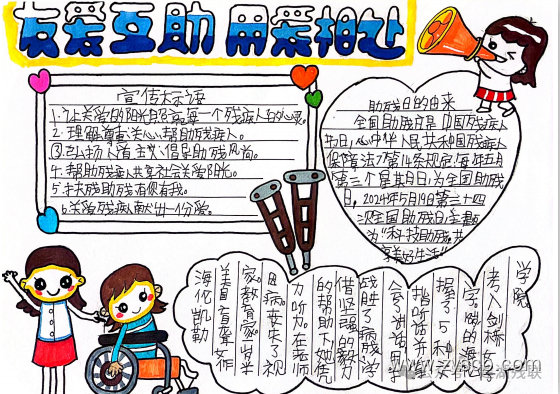 友爱互助 用爱相处
宣传标语
1.让关爱的阳光照亮每一个残疾人的心灵。
2.理解尊重关心帮助残疾人。
③弘扬人道主义倡导助残风尚。
4.帮助残疾人共享社会关爱阳光。
5.扶残助残有你有我。
6.关爱残疾人献出一份爱。
助残日的由来
全国助残日是中国残疾人
节日,《中华人民共和国残疾人
保障法》第14条规定:每年五月
第三个星期日,为全国助残
日。2024年5月19日第三十四
次全国助残日,主题
为"科技助残,共
享美好生活"
海伦凯勒
美国盲聋女作
家。教育家。半
因病丧失了视
力听力在老师
的帮助下她凭
借坚强的毅力
战胜了病残学
会了讲话用手
指听话并掌
握了5种
文字。24岁的海伦
考入剑桥女子
学院